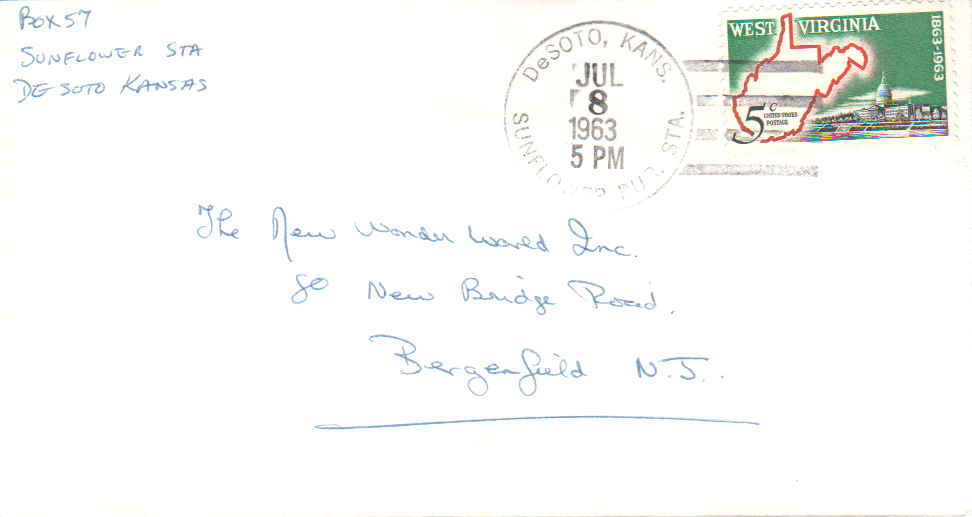 BOX 57
SUNFLOWER STA
DE SOTO KANSAS
DeSOTO, KANS.
JUL
8
1963
5 PM
SUNFLOWER STA.
WEST VIRGINIA
1863-1963
5c
UNITED STATES
POSTAGE
The New Wonder World Inc.
80 New Bridge Road.
Bergenfield N.J.